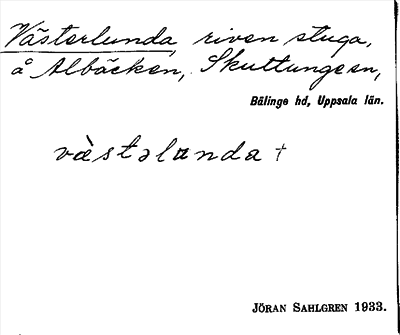 Västerlunda, riven stuga,
å Albäcken, Skuttunge sn,
Bälinge hd, Uppsala län.
vä̀stəlunda †
JÖRAN SAHLGREN 1933.